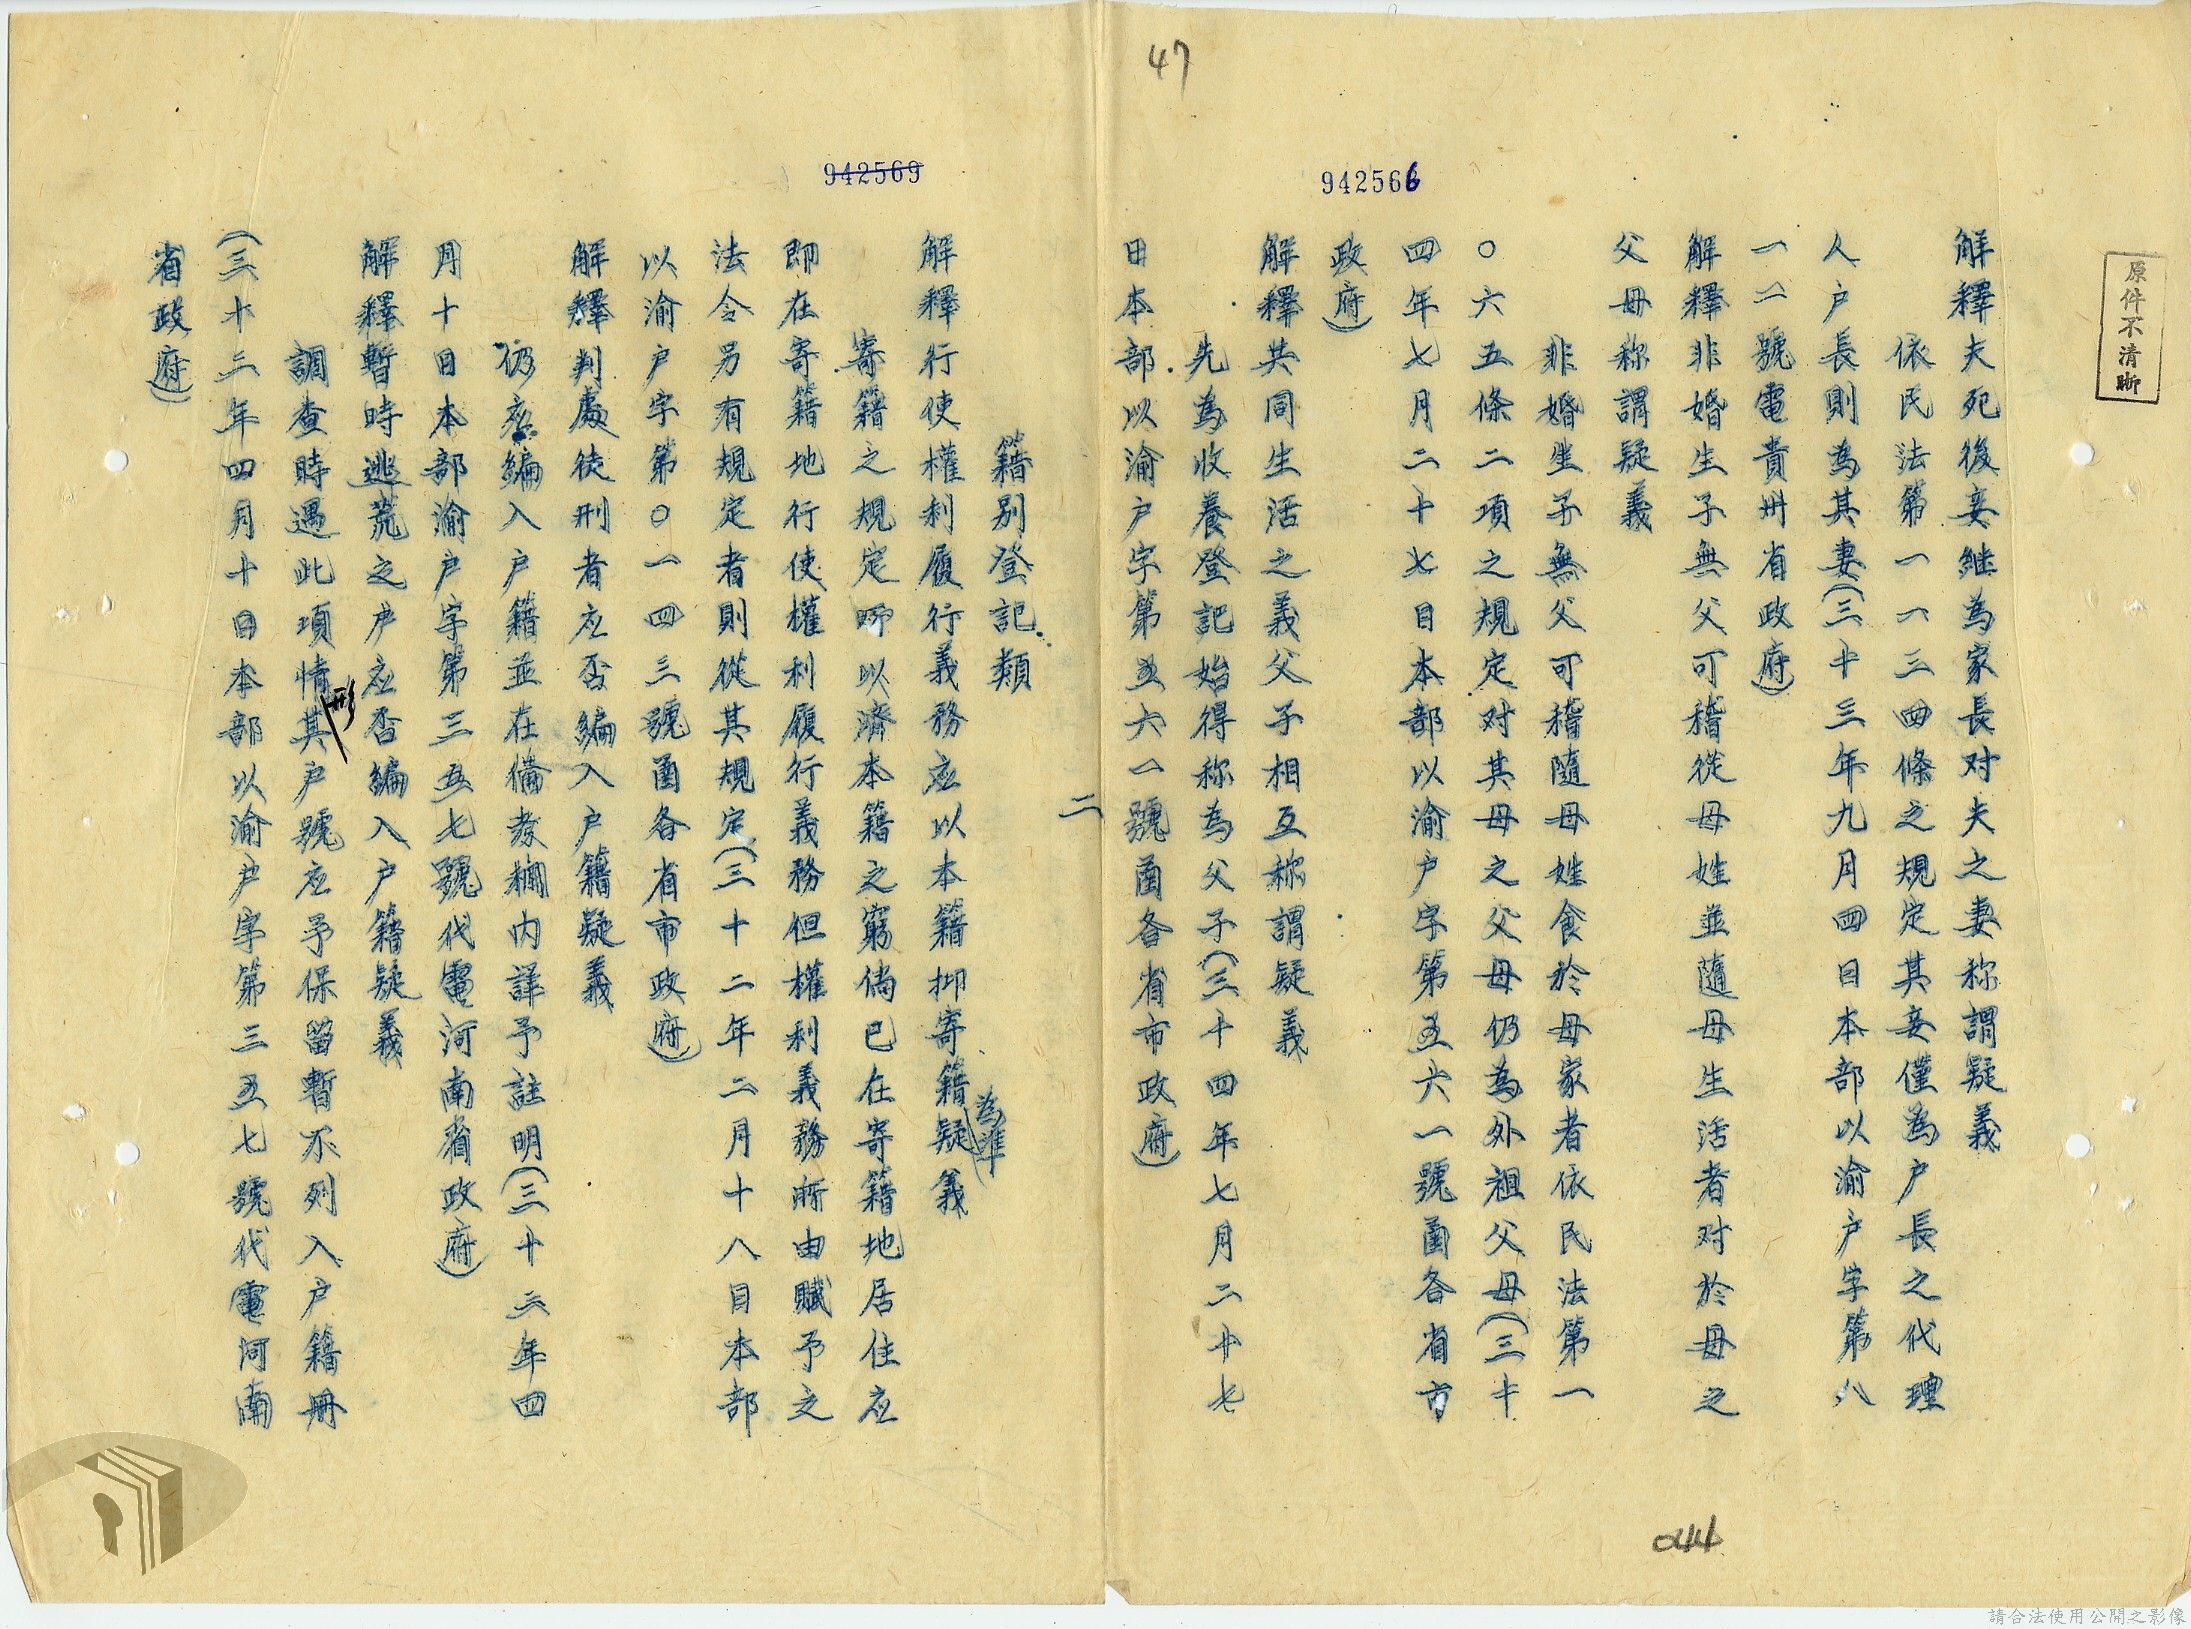 原件不清晰
47
942566
解釋夫死後妾繼為家長对夫之妻称謂疑義
依民法第一一三四條之規定其妾僅為户長之代理
人户長則為其妻(三十三年九月四日本部以渝户字第八
一二號電貴州省政府)
解釋非婚生子無父可稽從母姓並隨母生活者对於母之
父母称謂疑義
非婚生子無父可稽隨母姓食於母家者依民法第一
〇六五條二項之規定对其母之父母仍為外祖父母(三十
四年七月二十七日本部以渝户字第五六一號函各省市
政府)
解釋共同生活之義父子相互称謂疑義
先為收養登記始得称為父子(三十四年七月二十七
日本部以渝户字第五六一號函各省市政府)
二
044
942569
籍別登記類
解釋行使權利履行義務应以本籍抑寄籍為準疑義
寄籍之規定所以濟本籍之窮倘已在寄籍地居住应
即在寄籍地行使權利履行義務但權利義務所由賦予之
法令另有規定者則從其規定(三十二年二月十八日本部
以渝户字第〇一四三號函各省市政府)
解釋判處徒刑者应否編入户籍疑義
仍应編入户籍並在備考欄内詳予註明(三十二年四
月十日本部渝户字第三五七號代電河南省政府)
解釋暫時逃荒之户应否編入户籍疑義
調查時遇此項情形其户號应予保留暫不列入户籍册
(三十二年四月十日本部以渝户字第三五七號代電河南
省政府)
請合法使用公開之影像